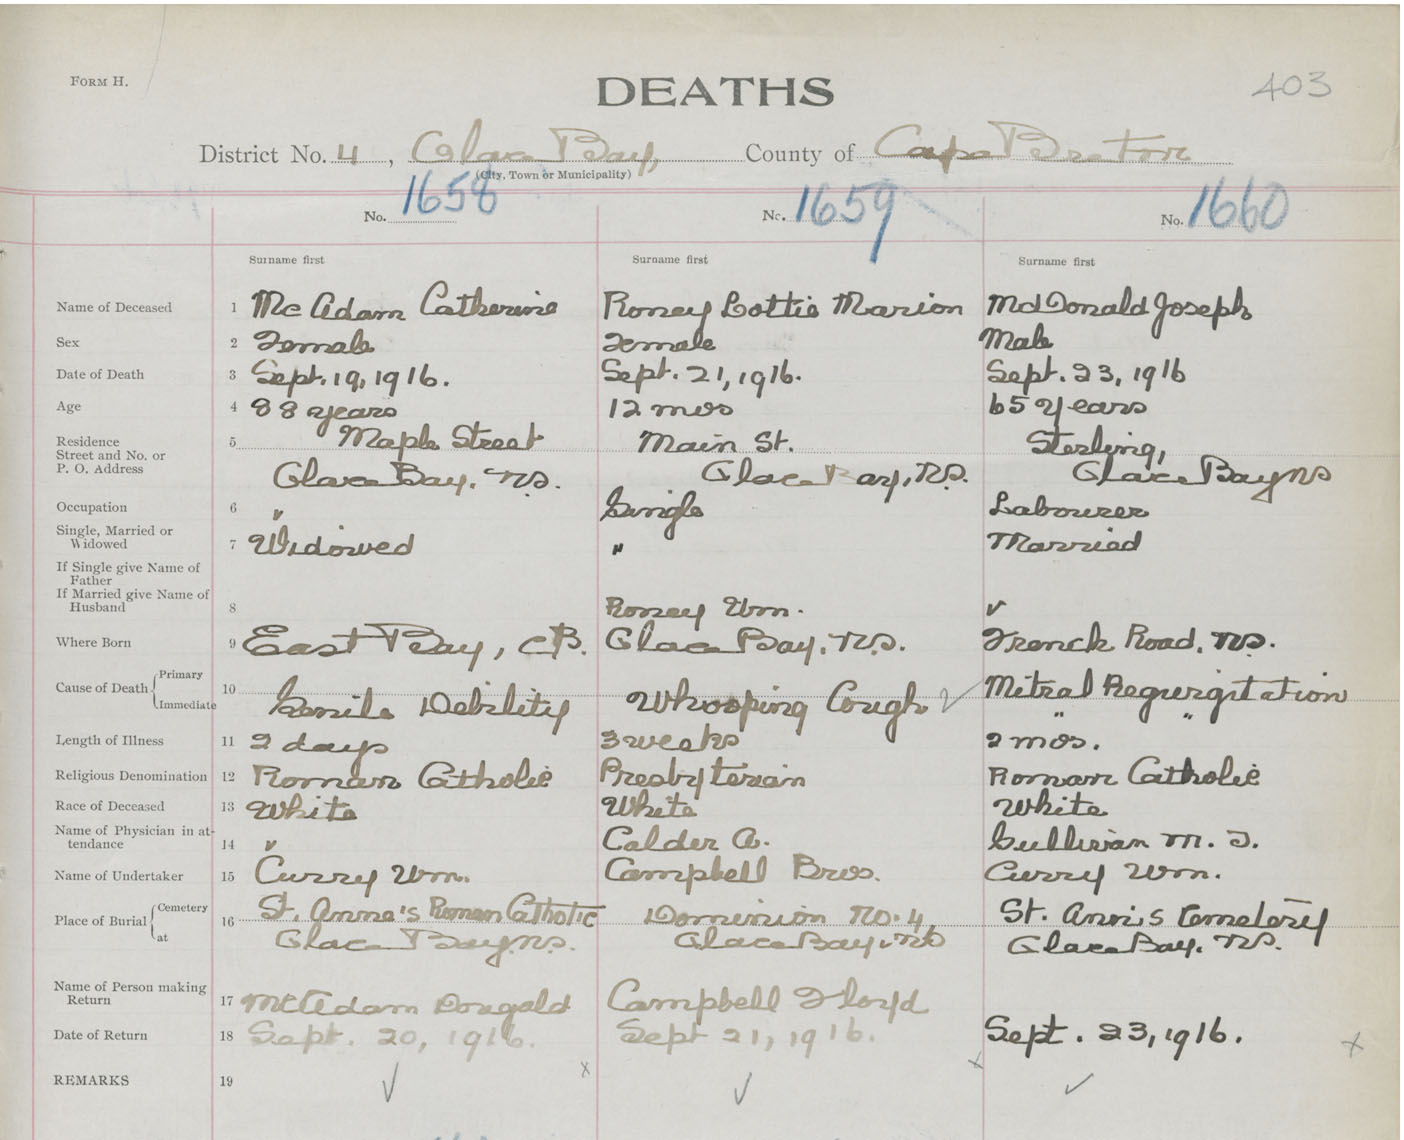 FORM H.
DEATHS
403
District No. 4, Glace Bay, County of Cape Breton
(City, Town or Municipality)
No. 1658 No. 1659 No. 1660
Surname first Surname first Surname first
Name of Deceased 1 McAdam Catherine Roney Lottie Marion McDonald Joseph
Sex 2 Female Female Male
Date of Death 3 Sept. 19, 1916. Sept. 21, 1916. Sept. 23, 1916
Age 4 88 years 12 mos 65 years
Residence 5 Maple Street Main St. Sterling,
Street and No. or
P. O. Address Glace Bay, N.S. Glace Bay, N.S. Glace Bay NS
Occupation 6 " Single Labourer
Single, Married or
Widowed 7 Widowed " Married
If Single give Name of
Father
If Married give Name of
Husband 8 Roney Wm. ✓
Where Born 9 East Bay, C.B. Glace Bay, N.S. French Road, N.S.
Cause of Death { Primary 10 Mitral Regurgitation
Immediate Senile Debility Whooping Cough ✓ " "
Length of Illness 11 2 days 3 weeks 2 mos.
Religious Denomination 12 Roman Catholic Presbyterian Roman Catholic
Race of Deceased 13 White White White
Name of Physician in at-
tendance 14 ✓ Calder A. Sullivan M. T.
Name of Undertaker 15 Curry Wm. Campbell Bros. Curry Wm.
Place of Burial { Cemetery 16 St. Anne's Roman Catholic Dominion No. 4 St. Ann's Cemetery
at Glace Bay N.S. Glace Bay, NS Glace Bay, N.S.
Name of Person making
Return 17 McAdam Dougald Campbell Floyd
Date of Return 18 Sept. 20, 1916. Sept 21, 1916. Sept. 23, 1916. x
REMARKS 19 ✓ x ✓ x ✓